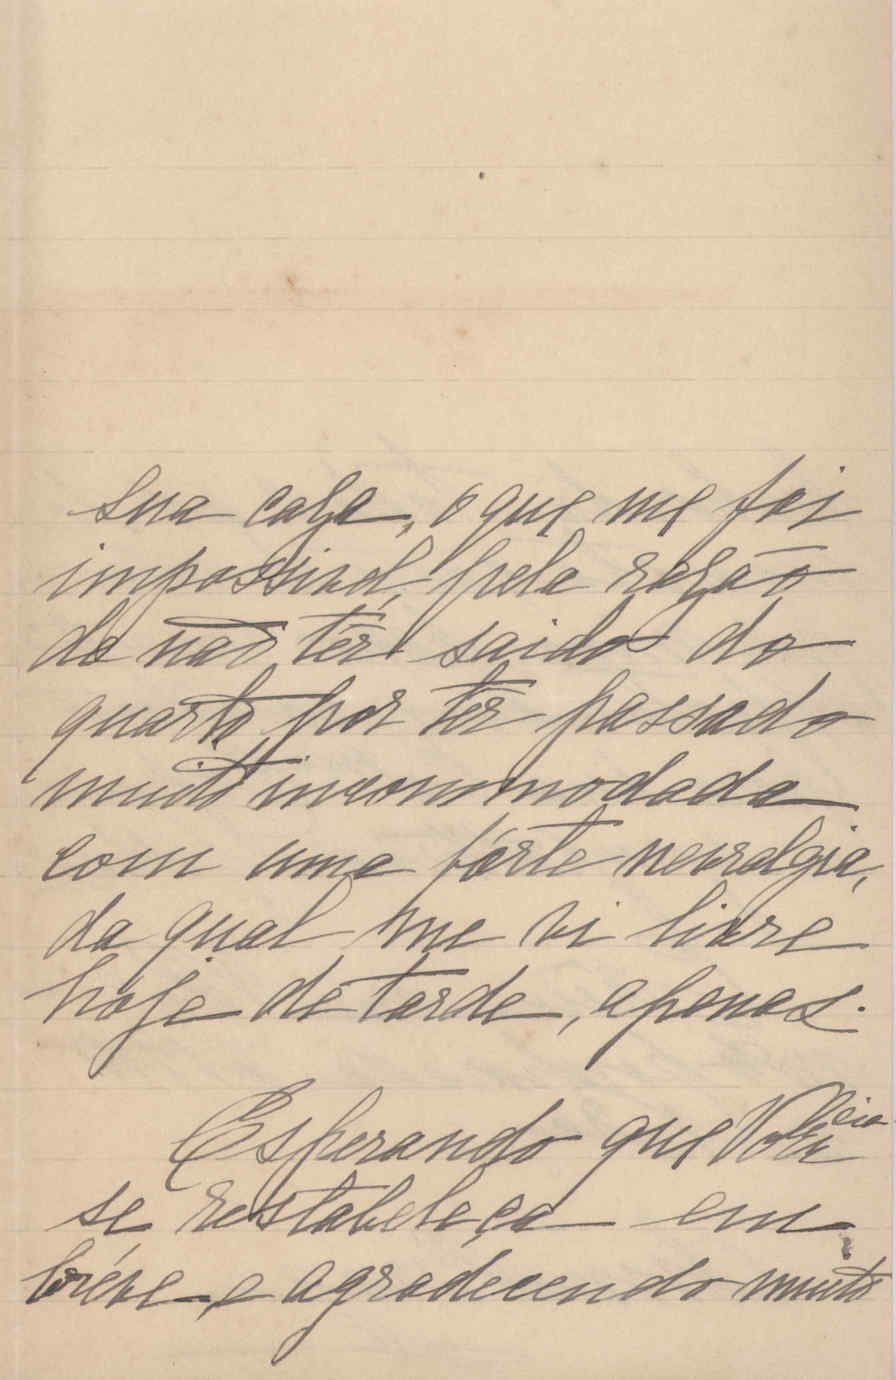 sua caza, o que me foi
impossivel, pela rezão
de não têr saido do
quarto por têr passado
muito incommodada
com uma fórte nevralgia,
da qual me vi livre
hoje de tarde, apenas.
Esperando que V. Excia
se restabeleça em
bréve e agradecendo muito